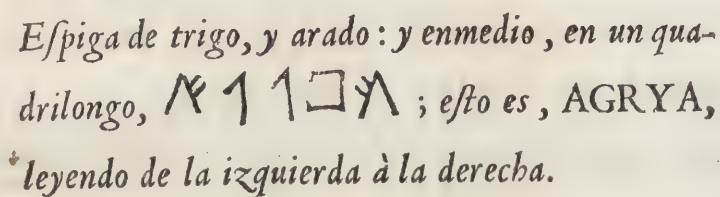 Eſpiga de trigo, y arado : y enmedio, en un qua-
drilongo, ; eſto es, AGRYA,
leyendo de la izquierda à la derecha.